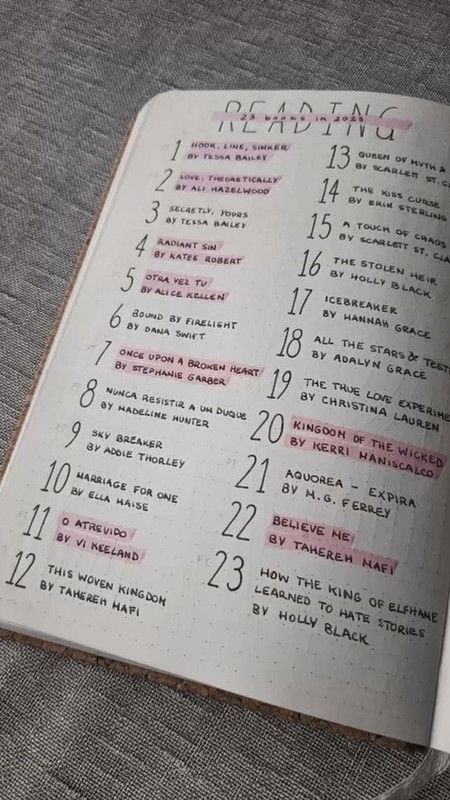 READING
23 books in 2023
1 HOOK, LINE, SINKER
BY TESSA BAILEY
2 LOVE, THEORETICALLY
BY ALI HAZELWOOD
3 SECRETLY, YOURS
BY TESSA BAILEY
4 RADIANT SIN
BY KATEE ROBERT
5 OTRA VEZ TU
BY ALICE KELLEN
6 BOUND BY FIRELIGHT
BY DANA SWIFT
7 ONCE UPON A BROKEN HEART
BY STEPHANIE GARBER
8 NUNCA RESISTIR A UM DUQUE
BY MADELINE HUNTER
9 SKY BREAKER
BY ADDIE THORLEY
10 MARRIAGE FOR ONE
BY ELLA MAISE
11 O ATREVIDO
BY VI KEELAND
12 THIS WOVEN KINGDOM
BY TAHEREH MAFI
13 QUEEN OF MYTH &
BY SCARLETT ST. C
14 THE KISS CURSE
BY ERIN STERLING
15 A TOUCH OF CHAOS
BY SCARLETT ST. CLA
16 THE STOLEN HEIR
BY HOLLY BLACK
17 ICEBREAKER
BY HANNAH GRACE
18 ALL THE STARS & TEET
BY ADALYN GRACE
19 THE TRUE LOVE EXPERIME
BY CHRISTINA LAUREN
20 KINGDOM OF THE WICKED
BY KERRI MANISCALCO
21 AQUOREA - EXPIRA
BY M. G. FERREY
22 BELIEVE ME
BY TAHEREH MAFI
23 HOW THE KING OF ELFHAME
LEARNED TO HATE STORIES
BY HOLLY BLACK